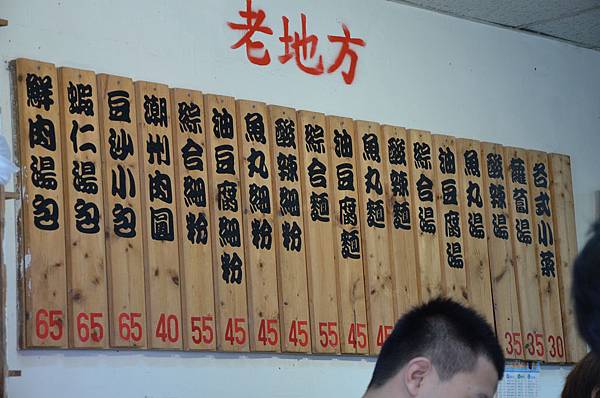 老地方
鮮肉湯包 65
蝦仁湯包 65
豆沙小包 65
潮州肉圓 40
綜合細粉 55
油豆腐細粉 45
魚丸細粉 45
酸辣細粉 45
綜合麵 55
油豆腐麵 45
魚丸麵 45
酸辣麵
綜合湯
油豆腐湯
魚丸湯
酸辣湯 35
蘿蔔湯 35
各式小菜 30